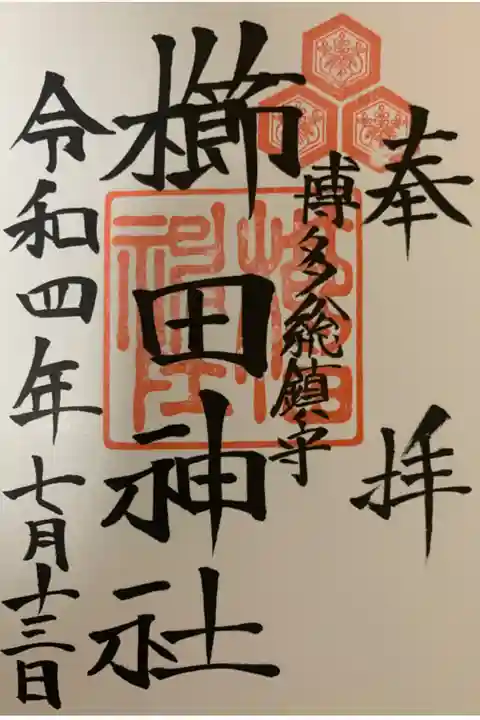 奉拝
博多総鎮守
櫛田神社
令和四年七月十三日